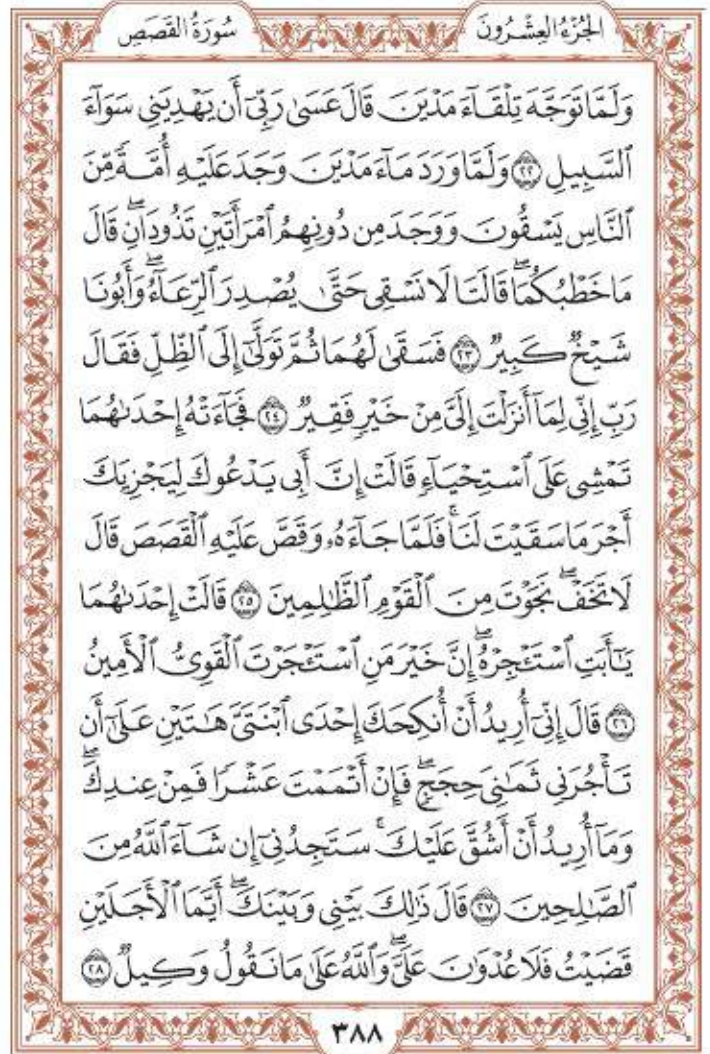 الجُزْءُ العِشْرُونَ سُورَةُ القَصَصِ
وَلَمَّا تَوَجَّهَ تِلْقَآءَ مَدْيَنَ قَالَ عَسَىٰ رَبِّىٓ أَن يَهْدِيَنِى سَوَآءَ
ٱلسَّبِيلِ ۝٢٢ وَلَمَّا وَرَدَ مَآءَ مَدْيَنَ وَجَدَ عَلَيْهِ أُمَّةً مِّنَ
ٱلنَّاسِ يَسْقُونَ وَوَجَدَ مِن دُونِهِمُ ٱمْرَأَتَيْنِ تَذُودَانِۖ قَالَ
مَا خَطْبُكُمَاۖ قَالَتَا لَا نَسْقِى حَتَّىٰ يُصْدِرَ ٱلرِّعَآءُۖ وَأَبُونَا
شَيْخٌ كَبِيرٌ ۝٢٣ فَسَقَىٰ لَهُمَا ثُمَّ تَوَلَّىٰٓ إِلَى ٱلظِّلِّ فَقَالَ
رَبِّ إِنِّى لِمَآ أَنزَلْتَ إِلَىَّ مِنْ خَيْرٍ فَقِيرٌ ۝٢٤ فَجَآءَتْهُ إِحْدَىٰهُمَا
تَمْشِى عَلَى ٱسْتِحْيَآءٍ قَالَتْ إِنَّ أَبِى يَدْعُوكَ لِيَجْزِيَكَ
أَجْرَ مَا سَقَيْتَ لَنَاۚ فَلَمَّا جَآءَهُۥ وَقَصَّ عَلَيْهِ ٱلْقَصَصَ قَالَ
لَا تَخَفْۖ نَجَوْتَ مِنَ ٱلْقَوْمِ ٱلظَّٰلِمِينَ ۝٢٥ قَالَتْ إِحْدَىٰهُمَا
يَٰٓأَبَتِ ٱسْتَـْٔجِرْهُۖ إِنَّ خَيْرَ مَنِ ٱسْتَـْٔجَرْتَ ٱلْقَوِىُّ ٱلْأَمِينُ
۝٢٦ قَالَ إِنِّىٓ أُرِيدُ أَنْ أُنكِحَكَ إِحْدَى ٱبْنَتَىَّ هَٰتَيْنِ عَلَىٰٓ أَن
تَأْجُرَنِى ثَمَٰنِىَ حِجَجٍۖ فَإِنْ أَتْمَمْتَ عَشْرًا فَمِنْ عِندِكَۖ
وَمَآ أُرِيدُ أَنْ أَشُقَّ عَلَيْكَۚ سَتَجِدُنِىٓ إِن شَآءَ ٱللَّهُ مِنَ
ٱلصَّٰلِحِينَ ۝٢٧ قَالَ ذَٰلِكَ بَيْنِى وَبَيْنَكَۖ أَيَّمَا ٱلْأَجَلَيْنِ
قَضَيْتُ فَلَا عُدْوَٰنَ عَلَىَّۖ وَٱللَّهُ عَلَىٰ مَا نَقُولُ وَكِيلٌ ۝٢٨
٣٨٨